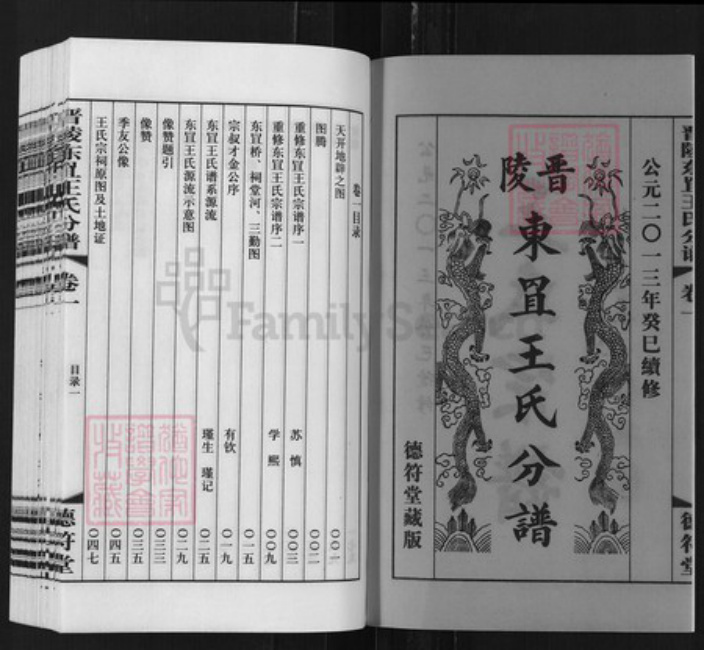 公元二〇一三年癸巳續修
晋陵
東罝王氏分譜
德符堂藏版
晋陵东罝王氏分谱 卷一
德符堂
卷一目录
天开地辟之图 〇〇一
图腾 〇〇二
重修东罝王氏宗谱序一 苏慎 〇〇三
重修东罝王氏宗谱序二 学熙 〇〇九
东罝桥、祠堂河、三勤图 〇一五
宗叔才金公序 有钦 〇一九
东罝王氏谱系源流 瑾生 瑾记 〇二五
东罝王氏源流示意图 〇二九
像赞题引 〇三三
像赞 〇三五
季友公像 〇四五
王氏宗祠原图及土地证 〇四七
晋陵东罝王氏分谱 卷一
目录一
德符堂
FamilySearch